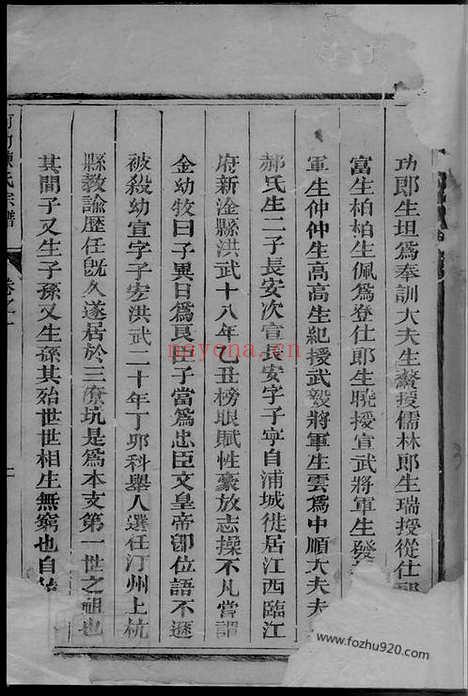 功郎生坦爲奉訓大夫生發授儒林郎生瑞授從仕郎
富生柏柏生佩爲登仕郎生曉授宣武將軍生發
軍生仲仲生高高生紀授武毅將軍生雲爲中順大夫夫
郝氏生二子長安次宣長安字子寧自浦城徙居江西臨江
府新淦縣洪武十八年乙丑榜眼賦性豪放志操不凡嘗謂
金幼牧曰子異日爲良臣子當爲忠臣文皇帝卽位語不遜
被殺幼宣字子宏洪武二十年丁卯科舉人選任汀州上杭
縣教諭歷任旣久遂居於三寮坑是爲本支第一世之祖也
其間子又生子孫又生孫其殆世世相生無窮也自
陳氏宗譜
nayona.cn
www.fozhu920.com